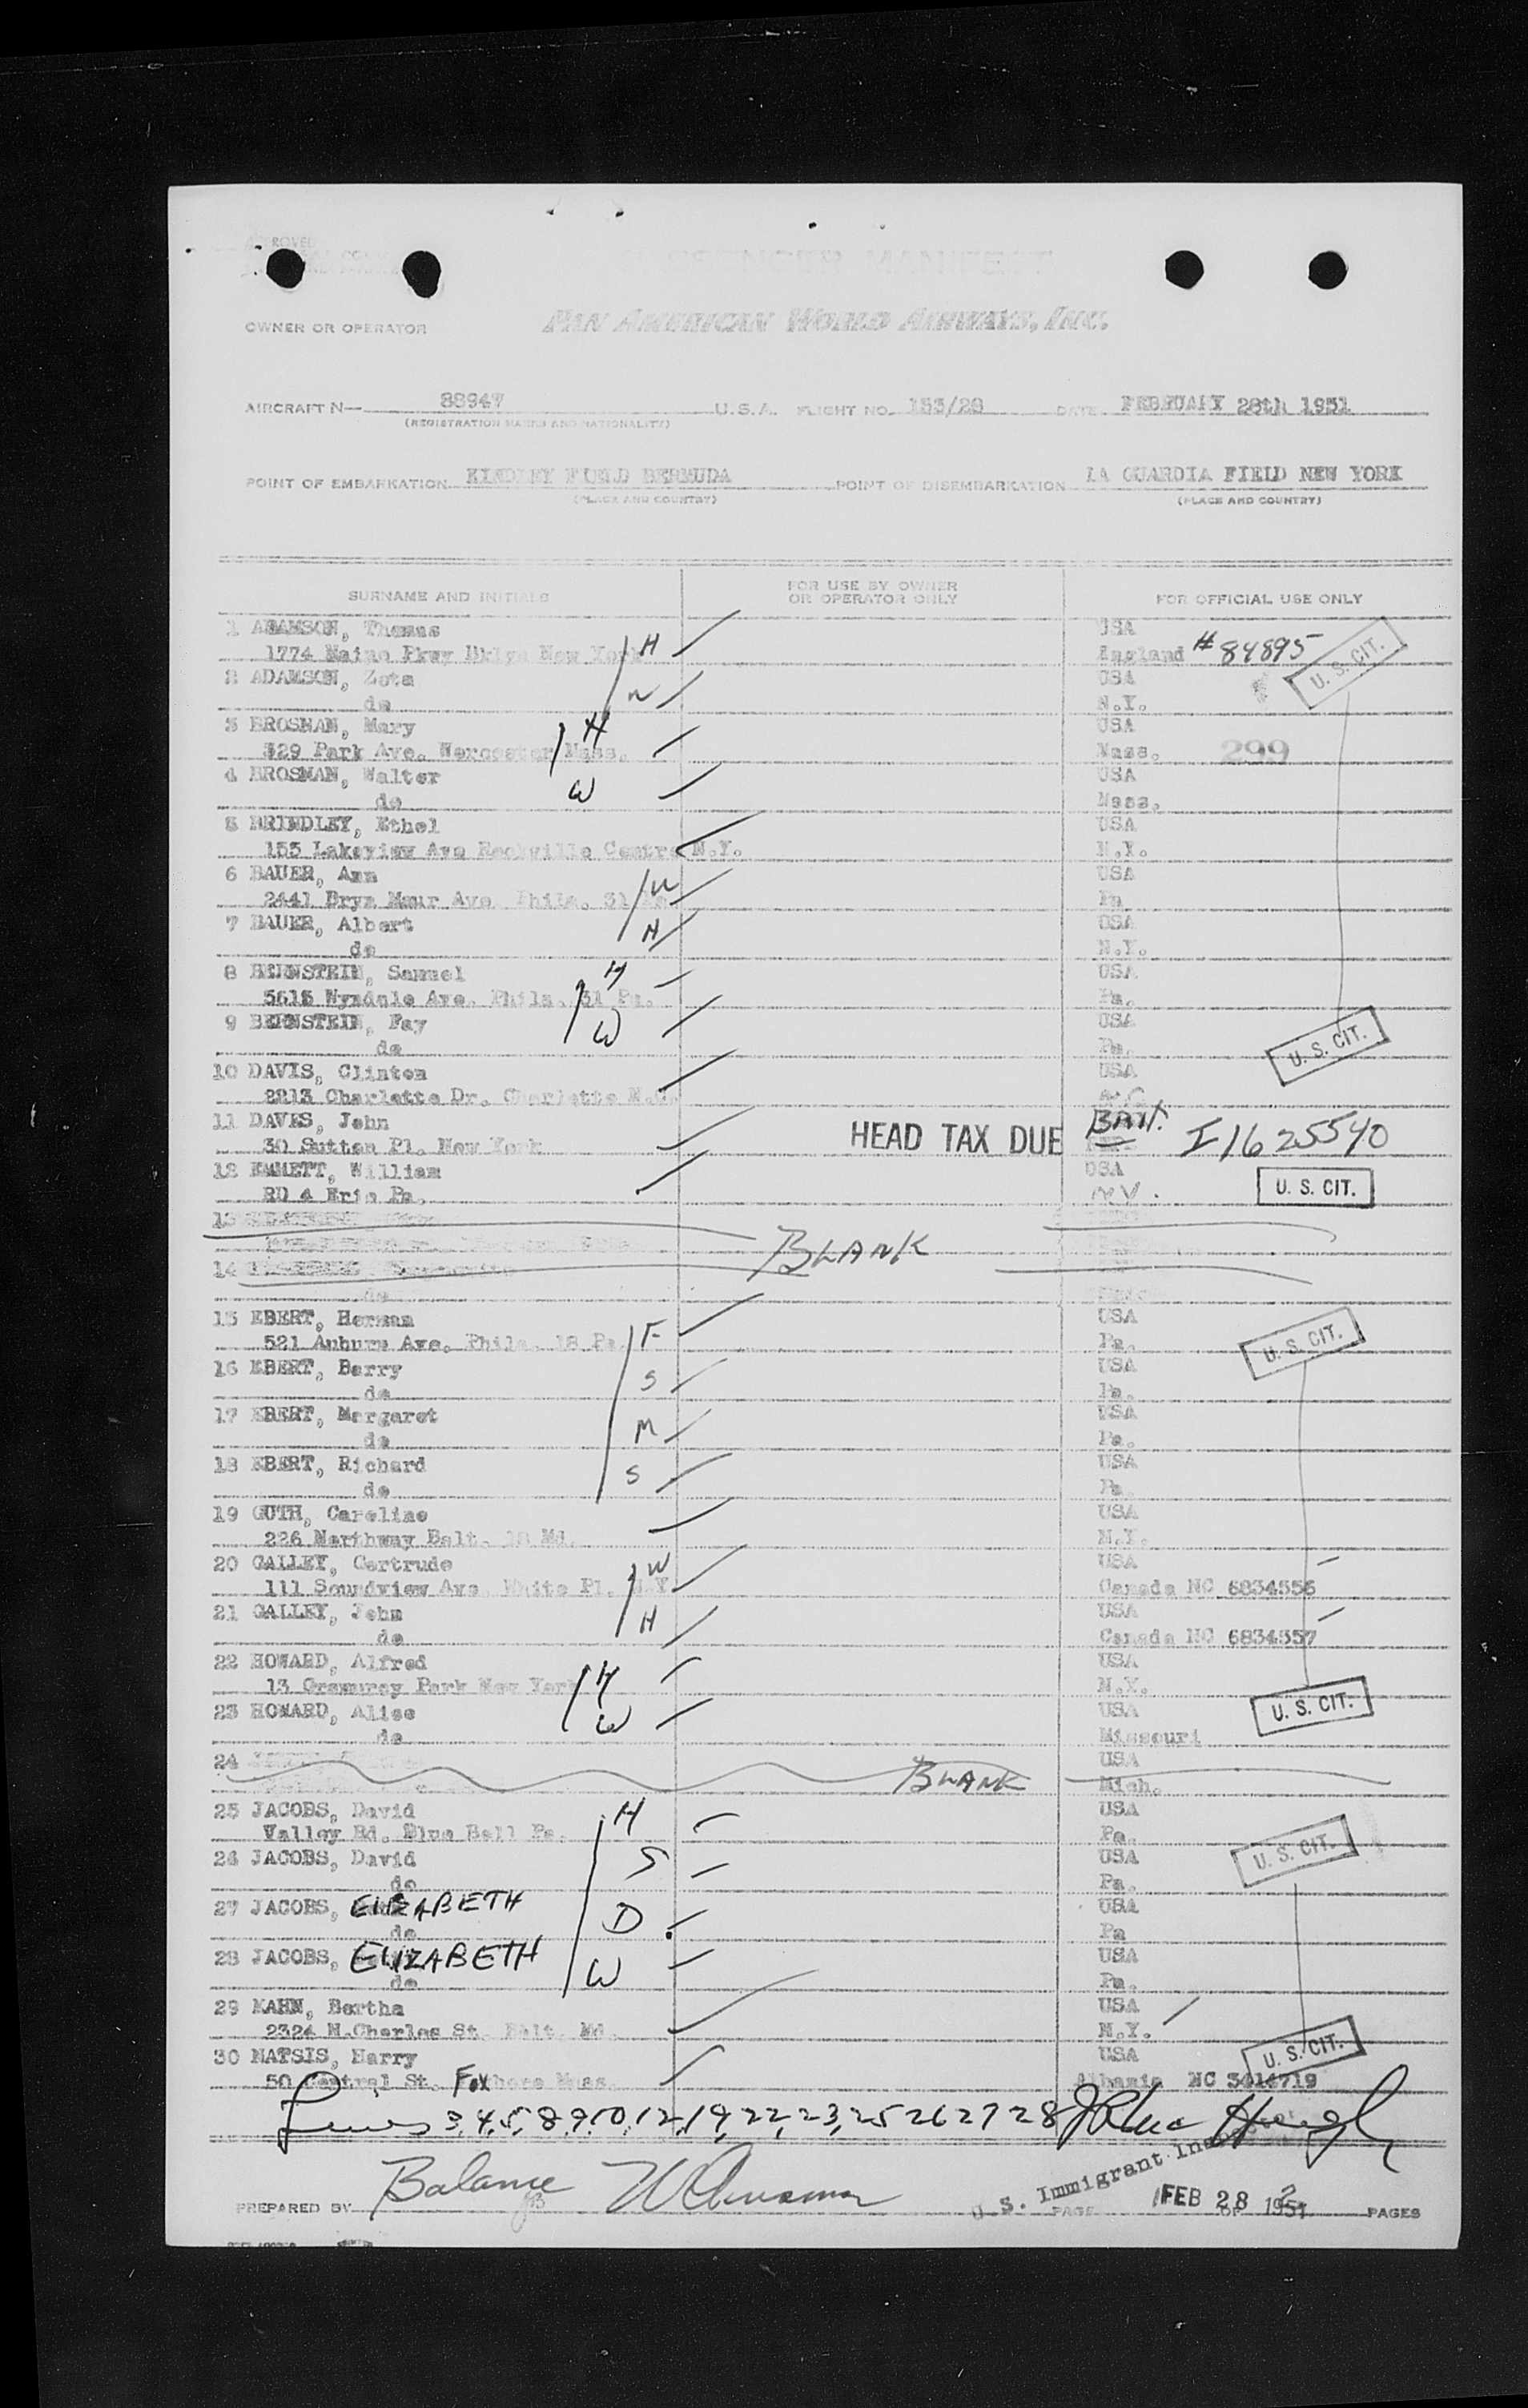 PASSENGER MANIFEST
OWNER OR OPERATOR PAN AMERICAN WORLD AIRWAYS, INC.
AIRCRAFT N— 88947 U.S.A. FLIGHT NO. 153/28 DATE FEBRUARY 28th 1951
(REGISTRATION MARKS AND NATIONALITY)
POINT OF EMBARKATION KINDLEY FIELD BERMUDA POINT OF DISEMBARKATION LA GUARDIA FIELD NEW YORK
(PLACE AND COUNTRY) (PLACE AND COUNTRY)
SURNAME AND INITIALS FOR USE BY OWNER OR OPERATOR ONLY FOR OFFICIAL USE ONLY
1 ADAMSON, Thomas USA
1774 Pkwy Bklyn New York H England #84895 U. S. CIT.
2 ADAMSON, Zota USA
do W N.Y.
3 BROSNAN, Mary H USA
329 Park Ave. Worcester Mass. Mass. 299
4 BROSNAN, Walter USA
do W Mass.
5 BRINDLEY, Ethel USA
153 Lakeview Ave Rockville Centre N.Y. N.Y.
6 BAUER, Ann W USA
2441 Bryn Maur Ave Phila. 31 Pa. Pa
7 BAUER, Albert H USA
do N.Y.
8 BERNSTEIN, Samuel H USA
5615 Wyndale Ave. Phila. 31 Pa. Pa.
9 BERNSTEIN, Fay W USA
do Pa. U. S. CIT.
10 DAVIS, Clinton USA
2213 Charlotte Dr. Charlotte N.C.
11 DAVES, John Brit.
30 Sutton Pl. New York HEAD TAX DUE I 1625540
12 EMMETT, William USA
RD 4 Erie Pa. U. S. CIT.
13
BLANK
14
do
15 EBERT, Herman USA
521 Auburn Ave. Phila. 18 Pa. F Pa. U. S. CIT.
16 EBERT, Barry USA
do S Pa.
17 EBERT, Margaret USA
do M Pa.
18 EBERT, Richard USA
do S Pa.
19 GUTH, Caroline USA
226 Northway Balt. 18 Md. N.Y.
20 GALLEY, Gertrude W USA
111 Soundview Ave White Pl. N.Y. Canada NC 6834556
21 GALLEY, John H USA
do Canada NC 6834557
22 HOWARD, Alfred USA
13 Gramurcy Park New York H N.Y.
23 HOWARD, Alice W USA U. S. CIT.
do Missouri
24 USA
BLANK Mich.
25 JACOBS, David H USA
Valley Rd. Blue Bell Pa. Pa.
26 JACOBS, David S USA U. S. CIT.
do Pa.
27 JACOBS, ELIZABETH D USA
do Pa
28 JACOBS, ELIZABETH W USA
do Pa.
29 KAHN, Bertha USA
2324 N.Charles St. Balt. Md. N.Y.
30 MATSIS, Harry USA U. S. CIT.
50 Central St. Foxboro Mass. Albania NC 3414719
3, 4, 5, 8, 9, 10, 12, 19, 22, 23, 25 26 27 28
Balance
U. S. Immigrant Inspector
PREPARED BY PAGE FEB 28 1951 OF 2 PAGES